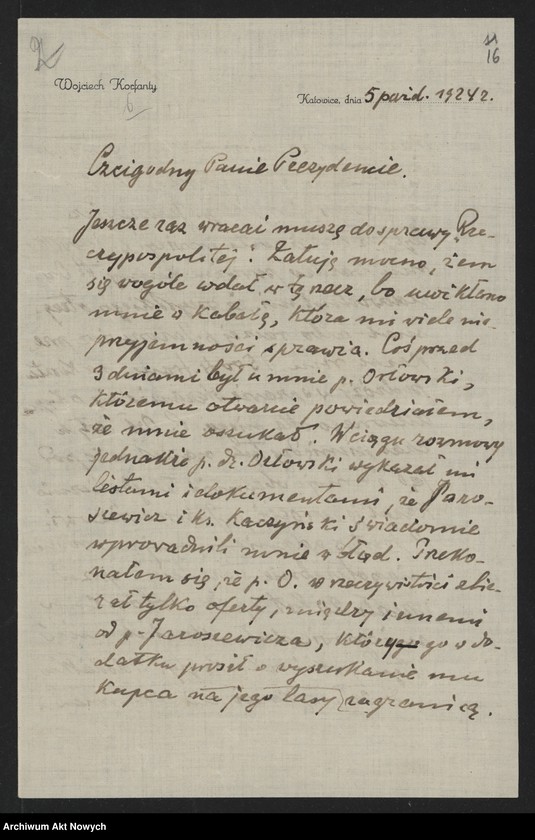 2
11
16
Wojciech Korfanty
6
Katowice, dnia 5 paźd. 1924 r.
Czcigodny Panie Prezydencie.
Jeszcze raz wracać muszę do sprawy „Rze-
czypospolitej". Żałuję mocno, żem
się wogóle wdał w tę rzecz, bo uwikłano
mnie w kabałę, która mi wiele nie-
przyjemności sprawia. Coś przed
3 dniami był u mnie p. Orłowski,
któremu otwarcie powiedziałem,
że mnie oszukał. W ciągu rozmowy
jednakże p. dr. Orłowski wykazał mi
listami i dokumentami, że Jaro-
siewicz i ks. Kaczyński świadomie
wprowadzili mnie w błąd. Przeko-
nałem się, że p. O. w rzeczywistości zbie-
rał tylko oferty, między innemi
od p. Jaroszewicza, który go w do-
datku prosił o wyszukanie mu
kupca na jego lasy zagranicą.
Archiwum Akt Nowych